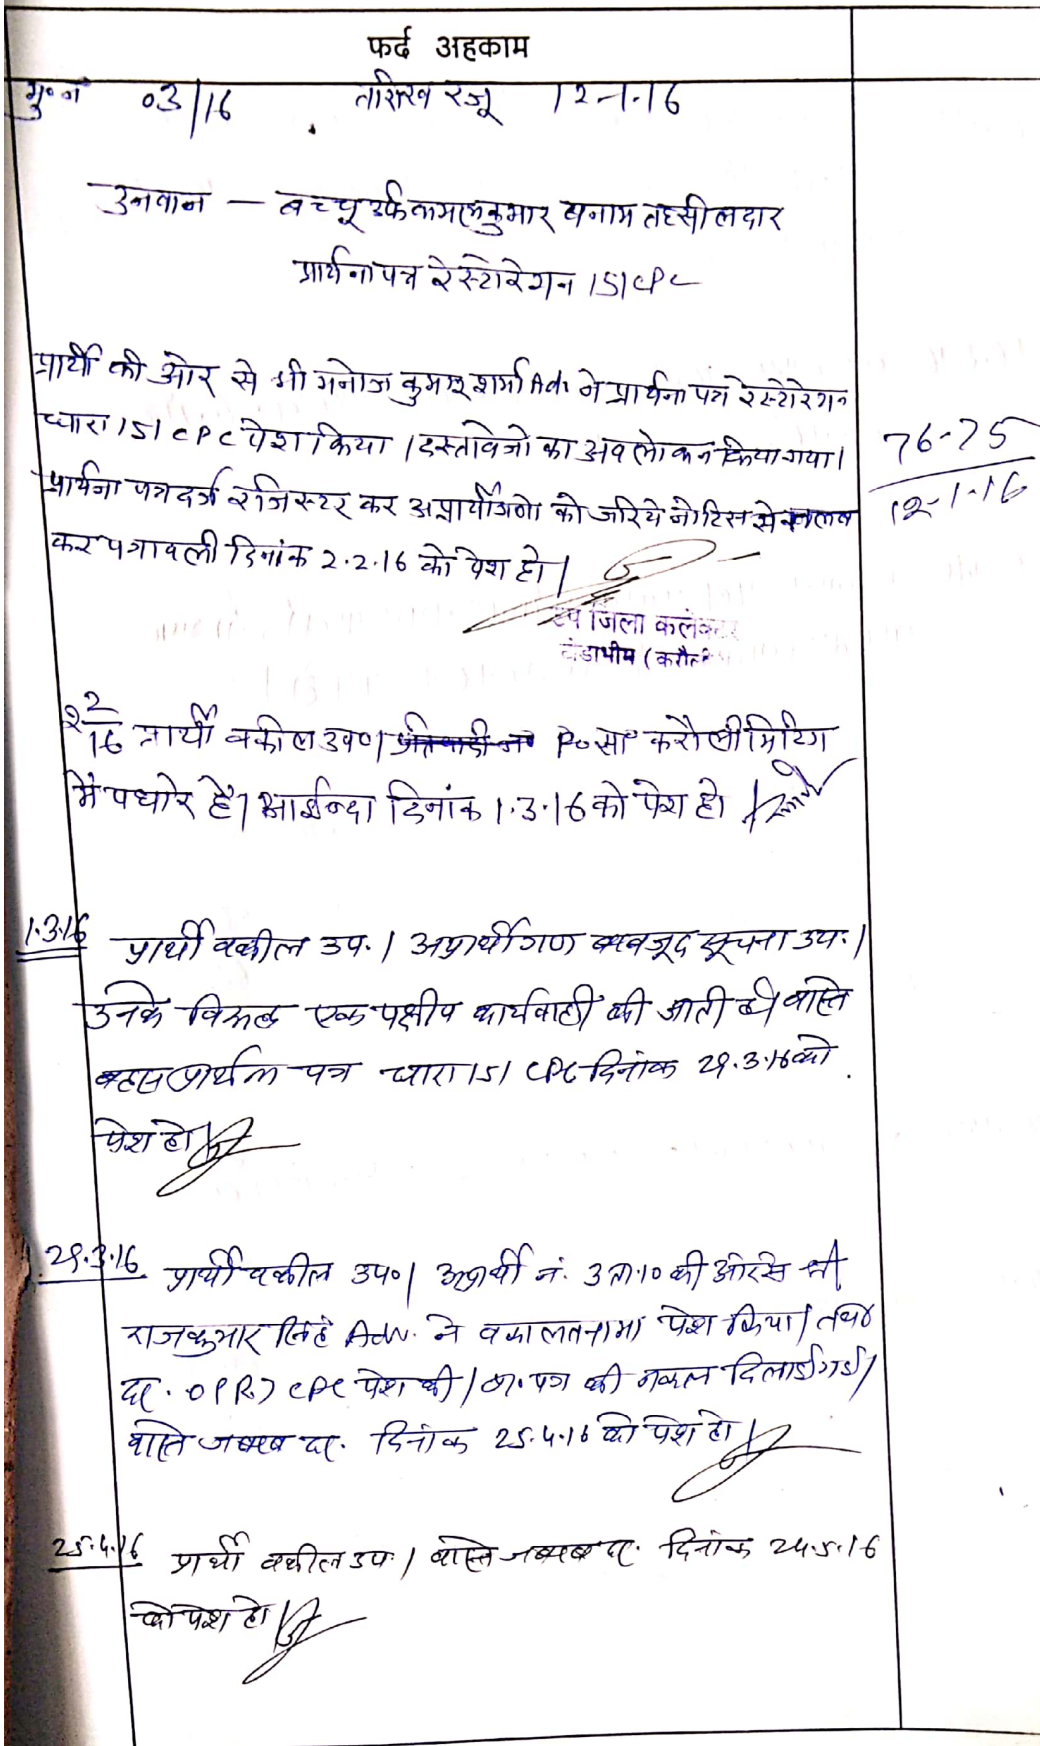 फर्द अहकाम
मु॰ नं 03/16 तारीख रजू 12-1-16
उनवान — बच्चू उर्फ कमलकुमार बनाम तहसीलदार
प्रार्थना पत्र रेस्टोरेशन 151 CPC
प्रार्थी की ओर से श्री मनोज कुमार शर्मा Adv. ने प्रार्थना पत्र रेस्टोरेशन
धारा 151 CPC पेश किया। दस्तावेजो का अवलोकन किया गया।
76-75
12-1-16
प्रार्थना पत्र दर्ज रजिस्टर कर अप्रार्थीगणो को जरिये नोटिस से तलब
कर पत्रावली दिनांक 2.2.16 को पेश हो।
उप जिला कलेक्टर
टोडाभीम (करौली
2/2/16 प्रार्थी वकील उप०। P०सा० करौली मिटिंग
में पधारे हैं। आईन्दा दिनांक 1.3.16 को पेश हो।
1.3.16 प्रार्थी वकील उप.। अप्रार्थीगण बावजूद सूचना उप.।
उनके विरूद्ध एक पक्षीय कार्यवाही की जाती है। वास्ते
बहस प्रार्थना पत्र धारा 151 CPC दिनांक 29.3.16 को
पेश हो।
29.3.16 प्रार्थी वकील उप०। अप्रार्थी नं. 3 ता.10 की ओर से श्री
राजकुमार सिंह Adv. ने वकालतनामा पेश किया। तथा
दर. O1R.) CPC पेश की। प्रा.पत्र की नकल दिलाई गई।
वास्ते जबाब दर. दिनांक 25.4.16 को पेश हो।
25.4.16 प्रार्थी वकील उप.। वास्ते जबाब दर. दिनांक 24.5.16
को पेश हो।